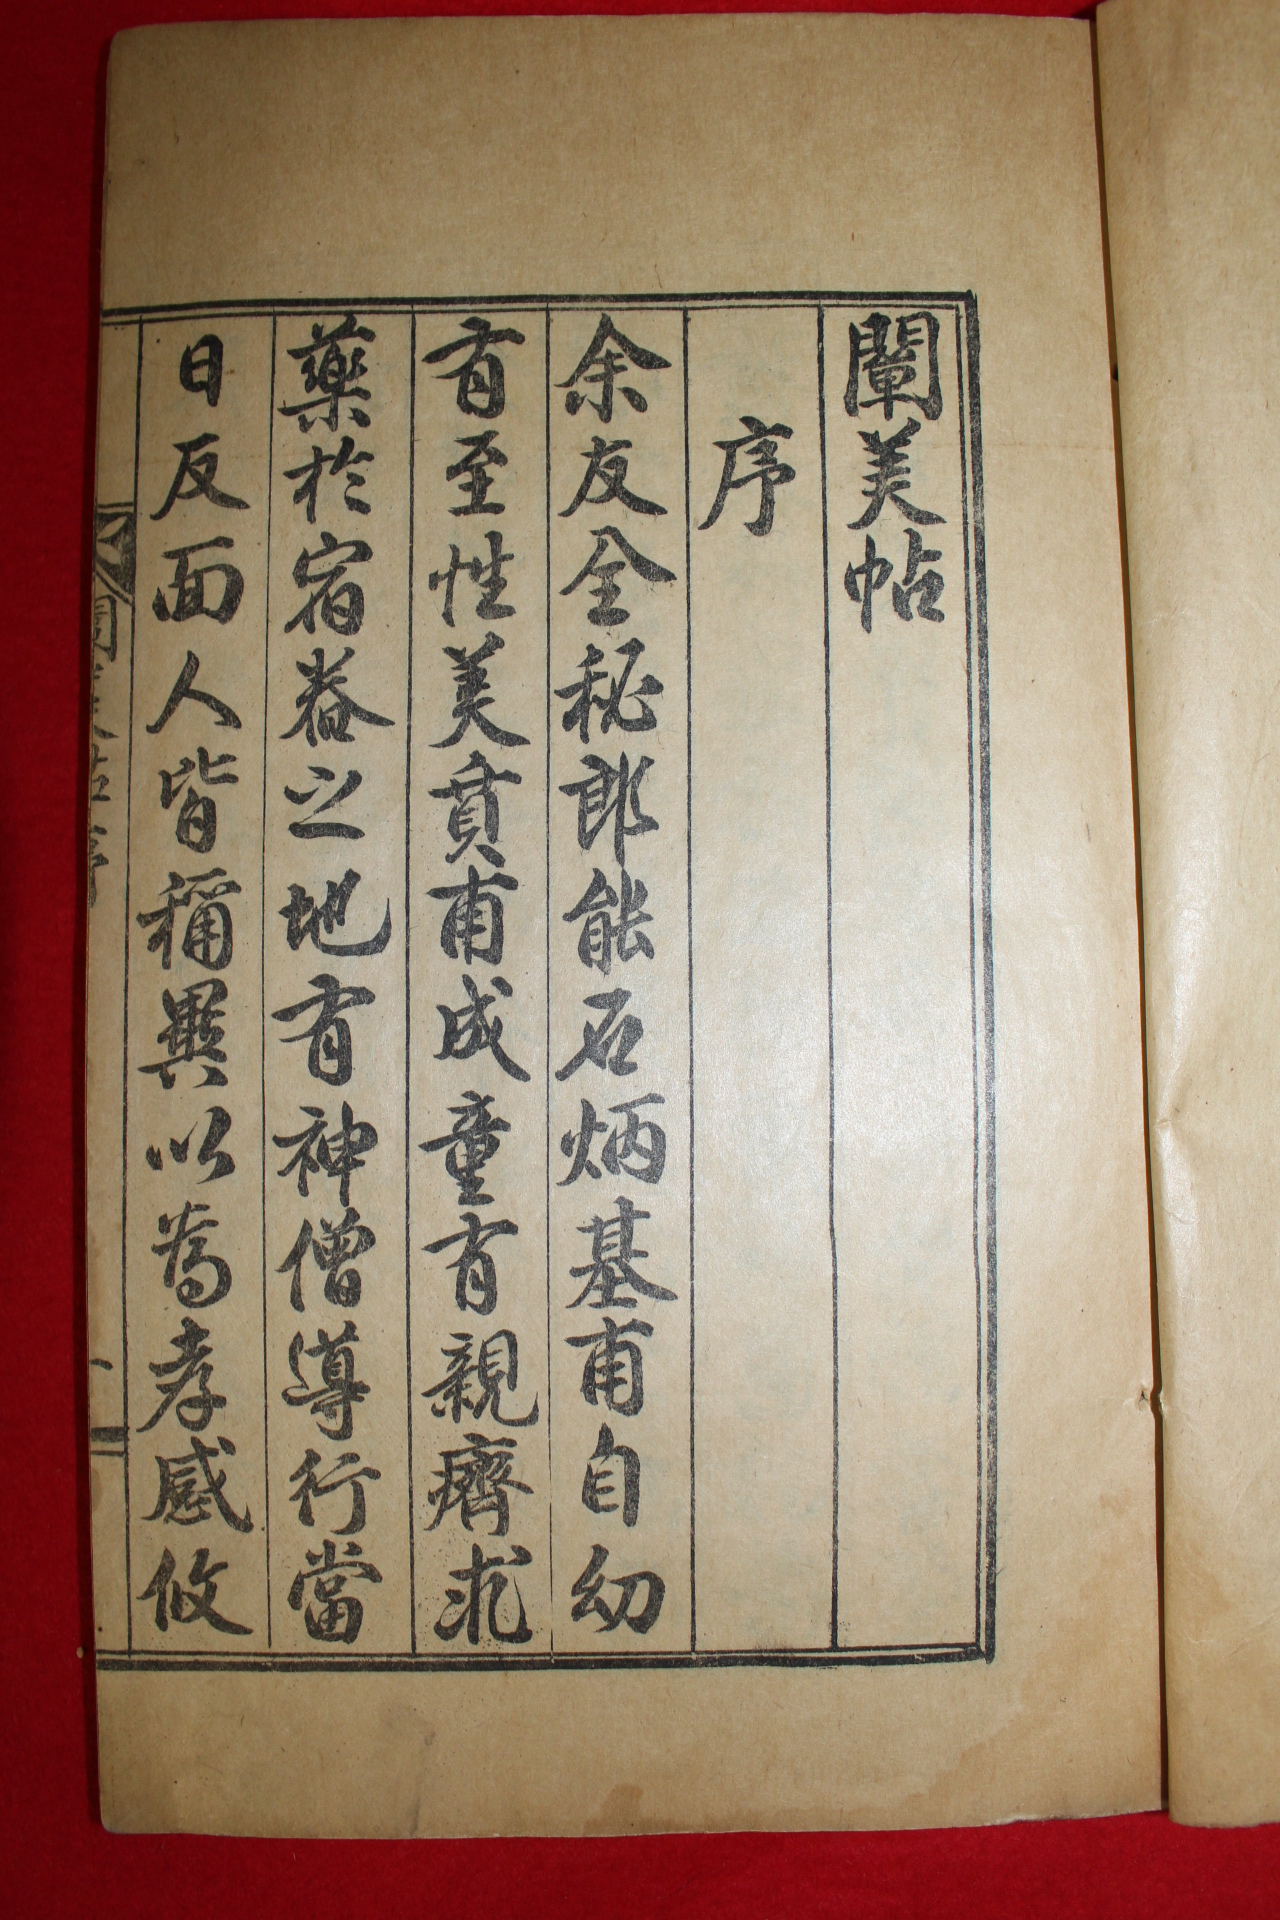 闡美帖
序
余友全秘郎能石炳基甫自幼
有至性美貭甫成童有親癠求
藥於宿舂之地有神僧導行當
日反面人皆稱異以爲孝感攸